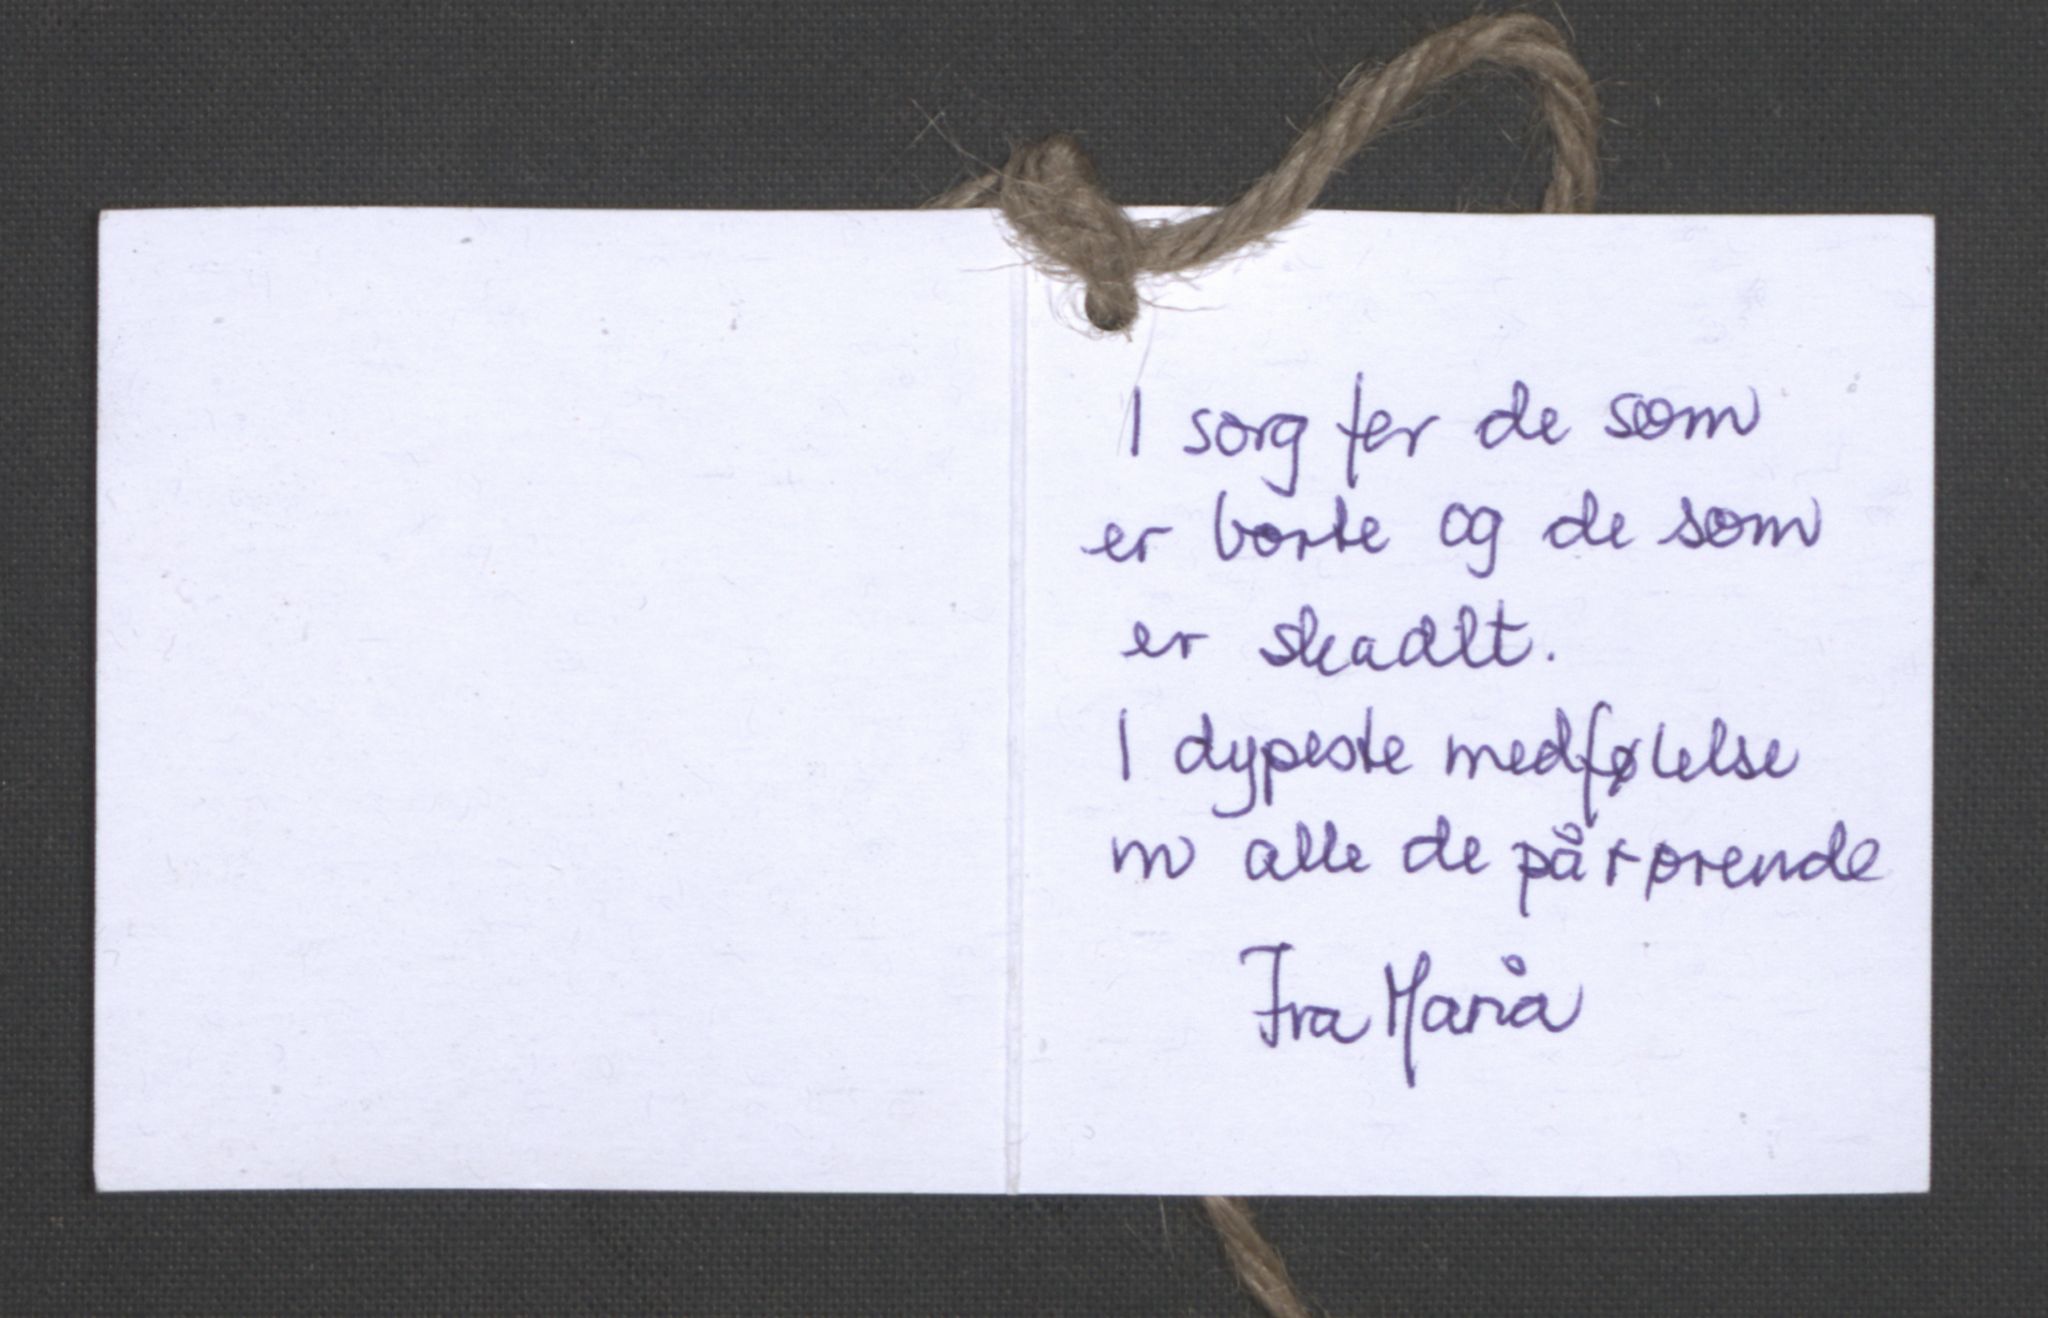 I sorg fer de som
er borte og de som
er skadlt.
I dypeste medfølelse
m alle de pårørende
Fra Maria